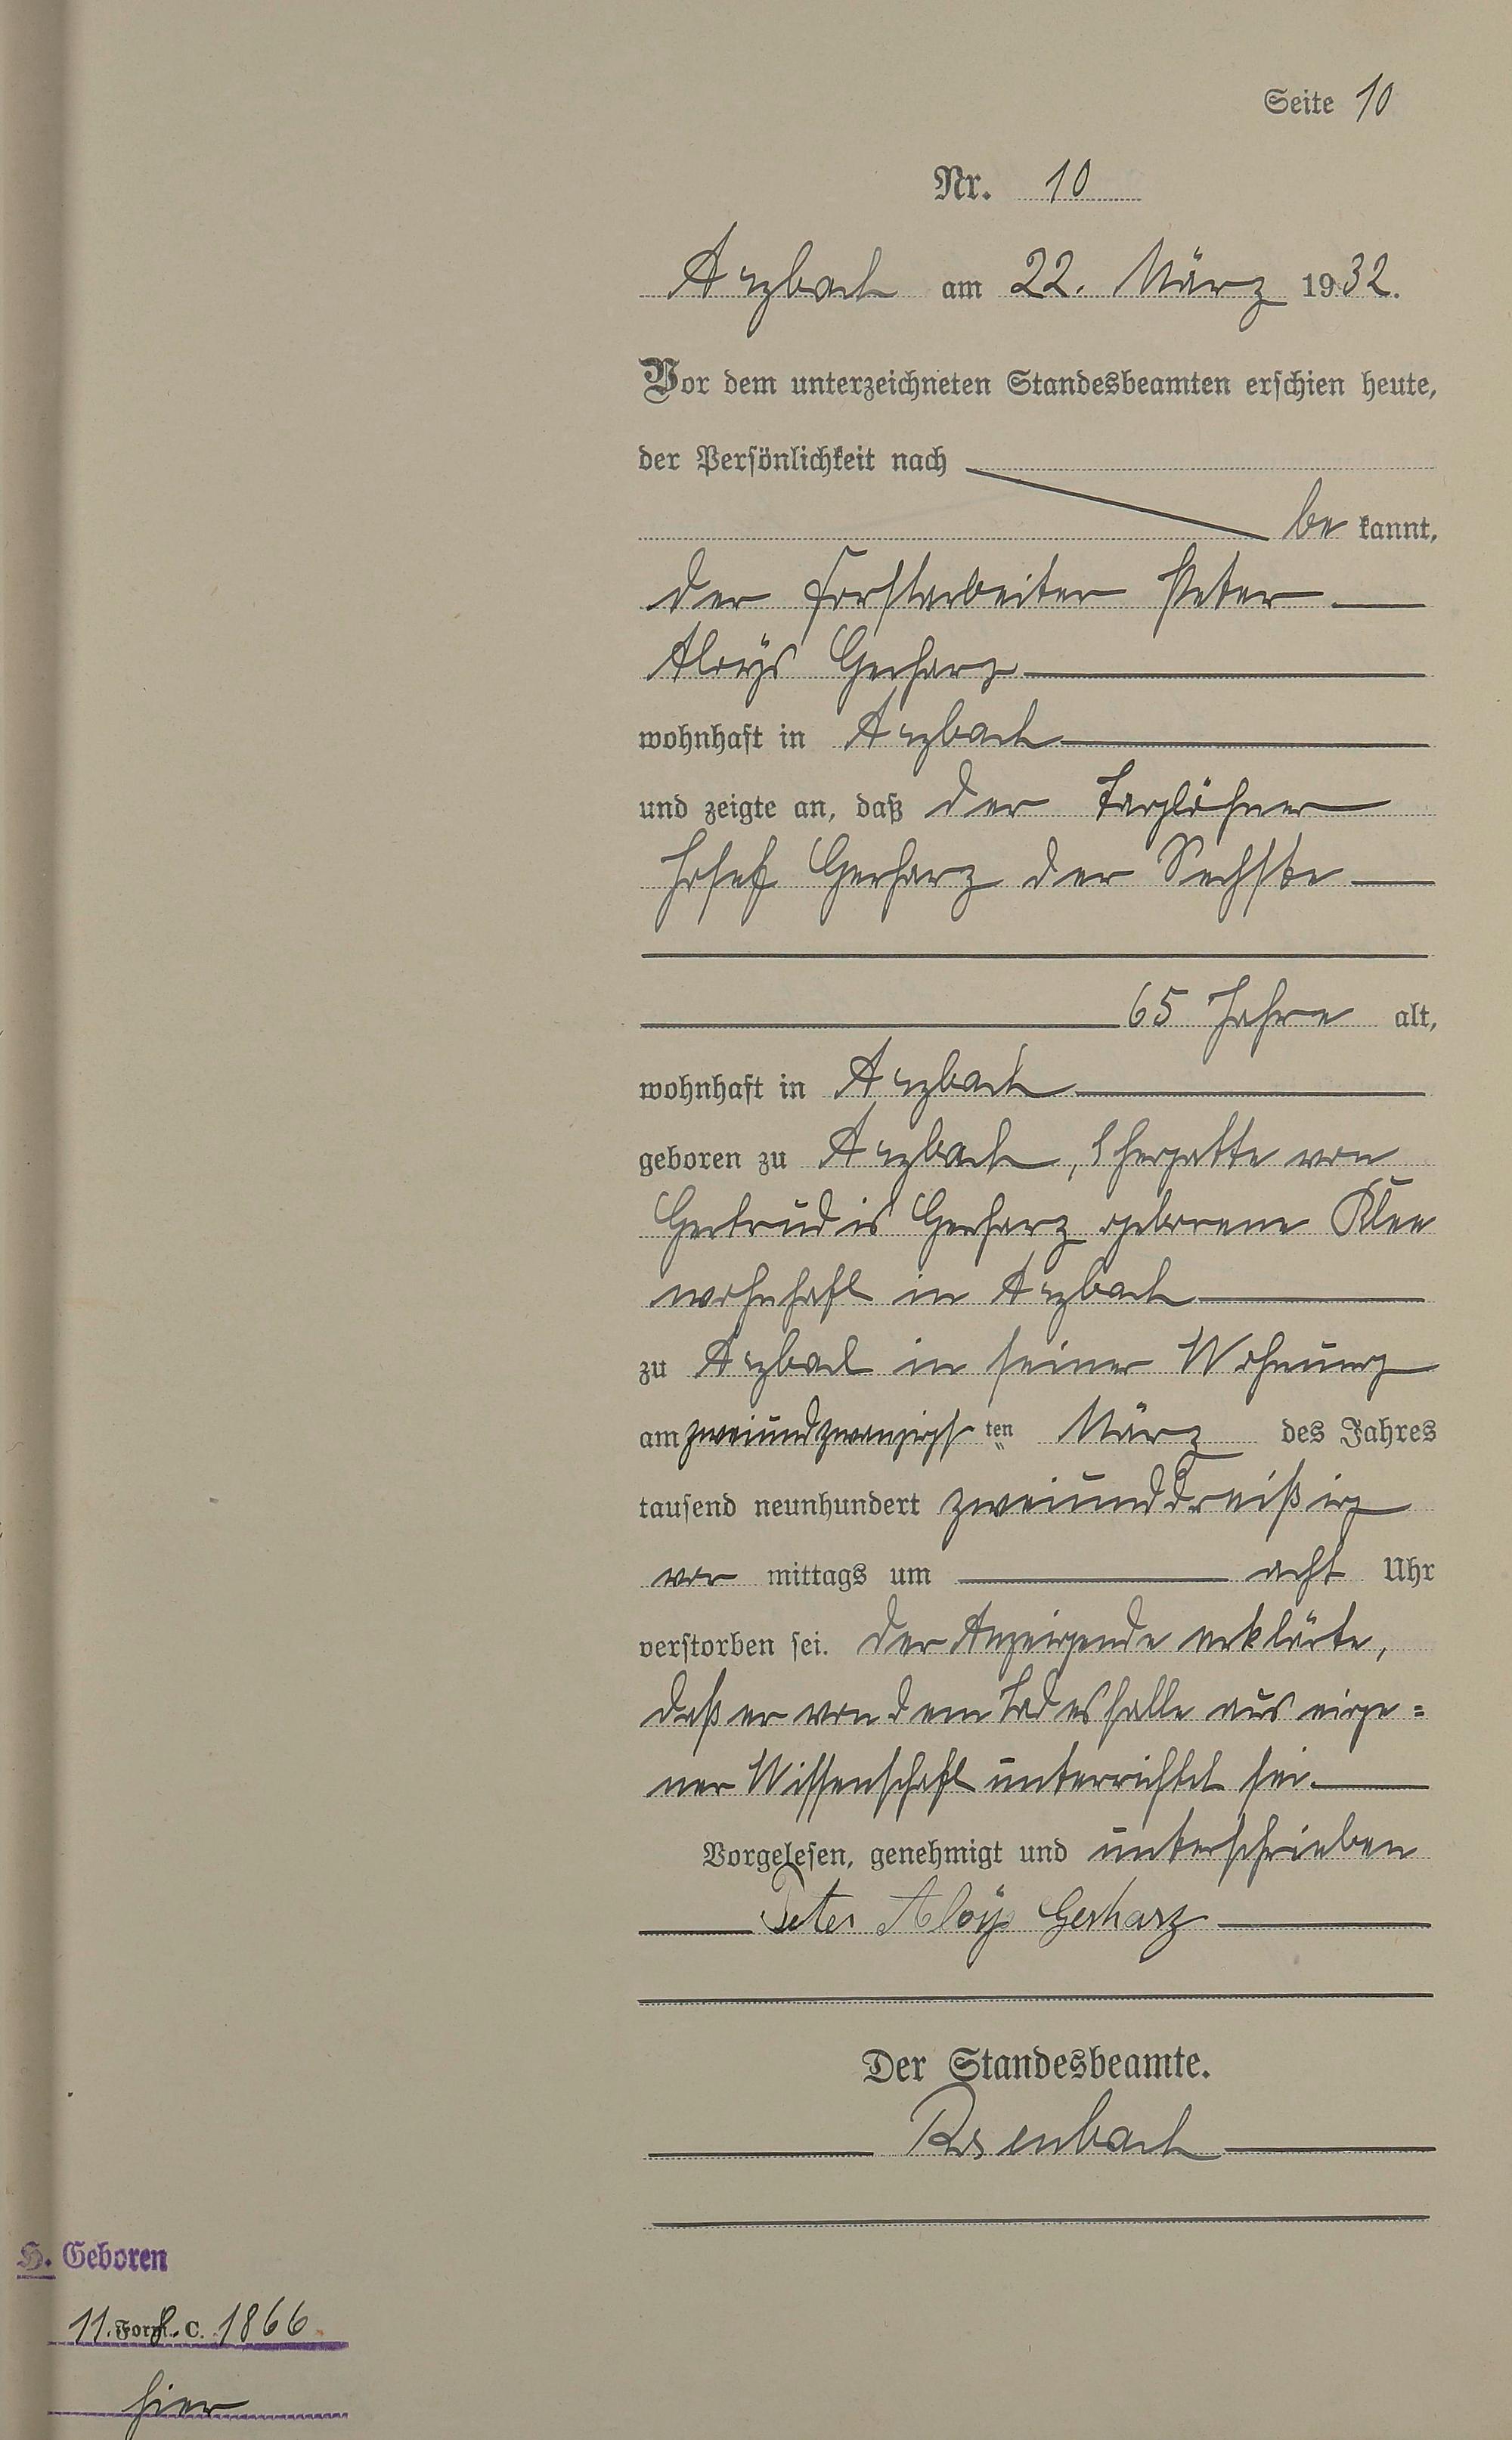 Seite 10
Nr. 10
Arzbach am 22. März 1932.
Vor dem unterzeichneten Standesbeamten erschien heute,
der Persönlichkeit nach
be kannt,
der Forstarbeiter Peter
Aloÿs Gerharz
wohnhaft in Arzbach
und zeigte an, daß der Taglöhner
Josef Gerharz der Sechste
65 Jahre alt,
wohnhaft in Arzbach
geboren zu Arzbach, Ehegatte von
Gertrudis Gerharz geborene Klee
wohnhaft in Arzbach
zu Arzbach in seiner Wohnung
am zweiundzwanzigsten März des Jahres
tausend neunhundert zweiunddreißig
vor mittags um acht Uhr
verstorben sei. Der Anzeigende erklärte,
daß er von dem Todesfalle aus eige=
ner Wissenschaft unterrichtet sei.
Vorgelesen, genehmigt und unterschrieben
Peter Aloÿs Gerharz
Der Standesbeamte.
Rosenbach
H. Geboren
11. Form. C. 8. 1866
hier